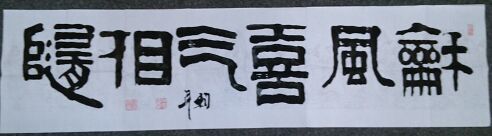 龢風喜气相隨